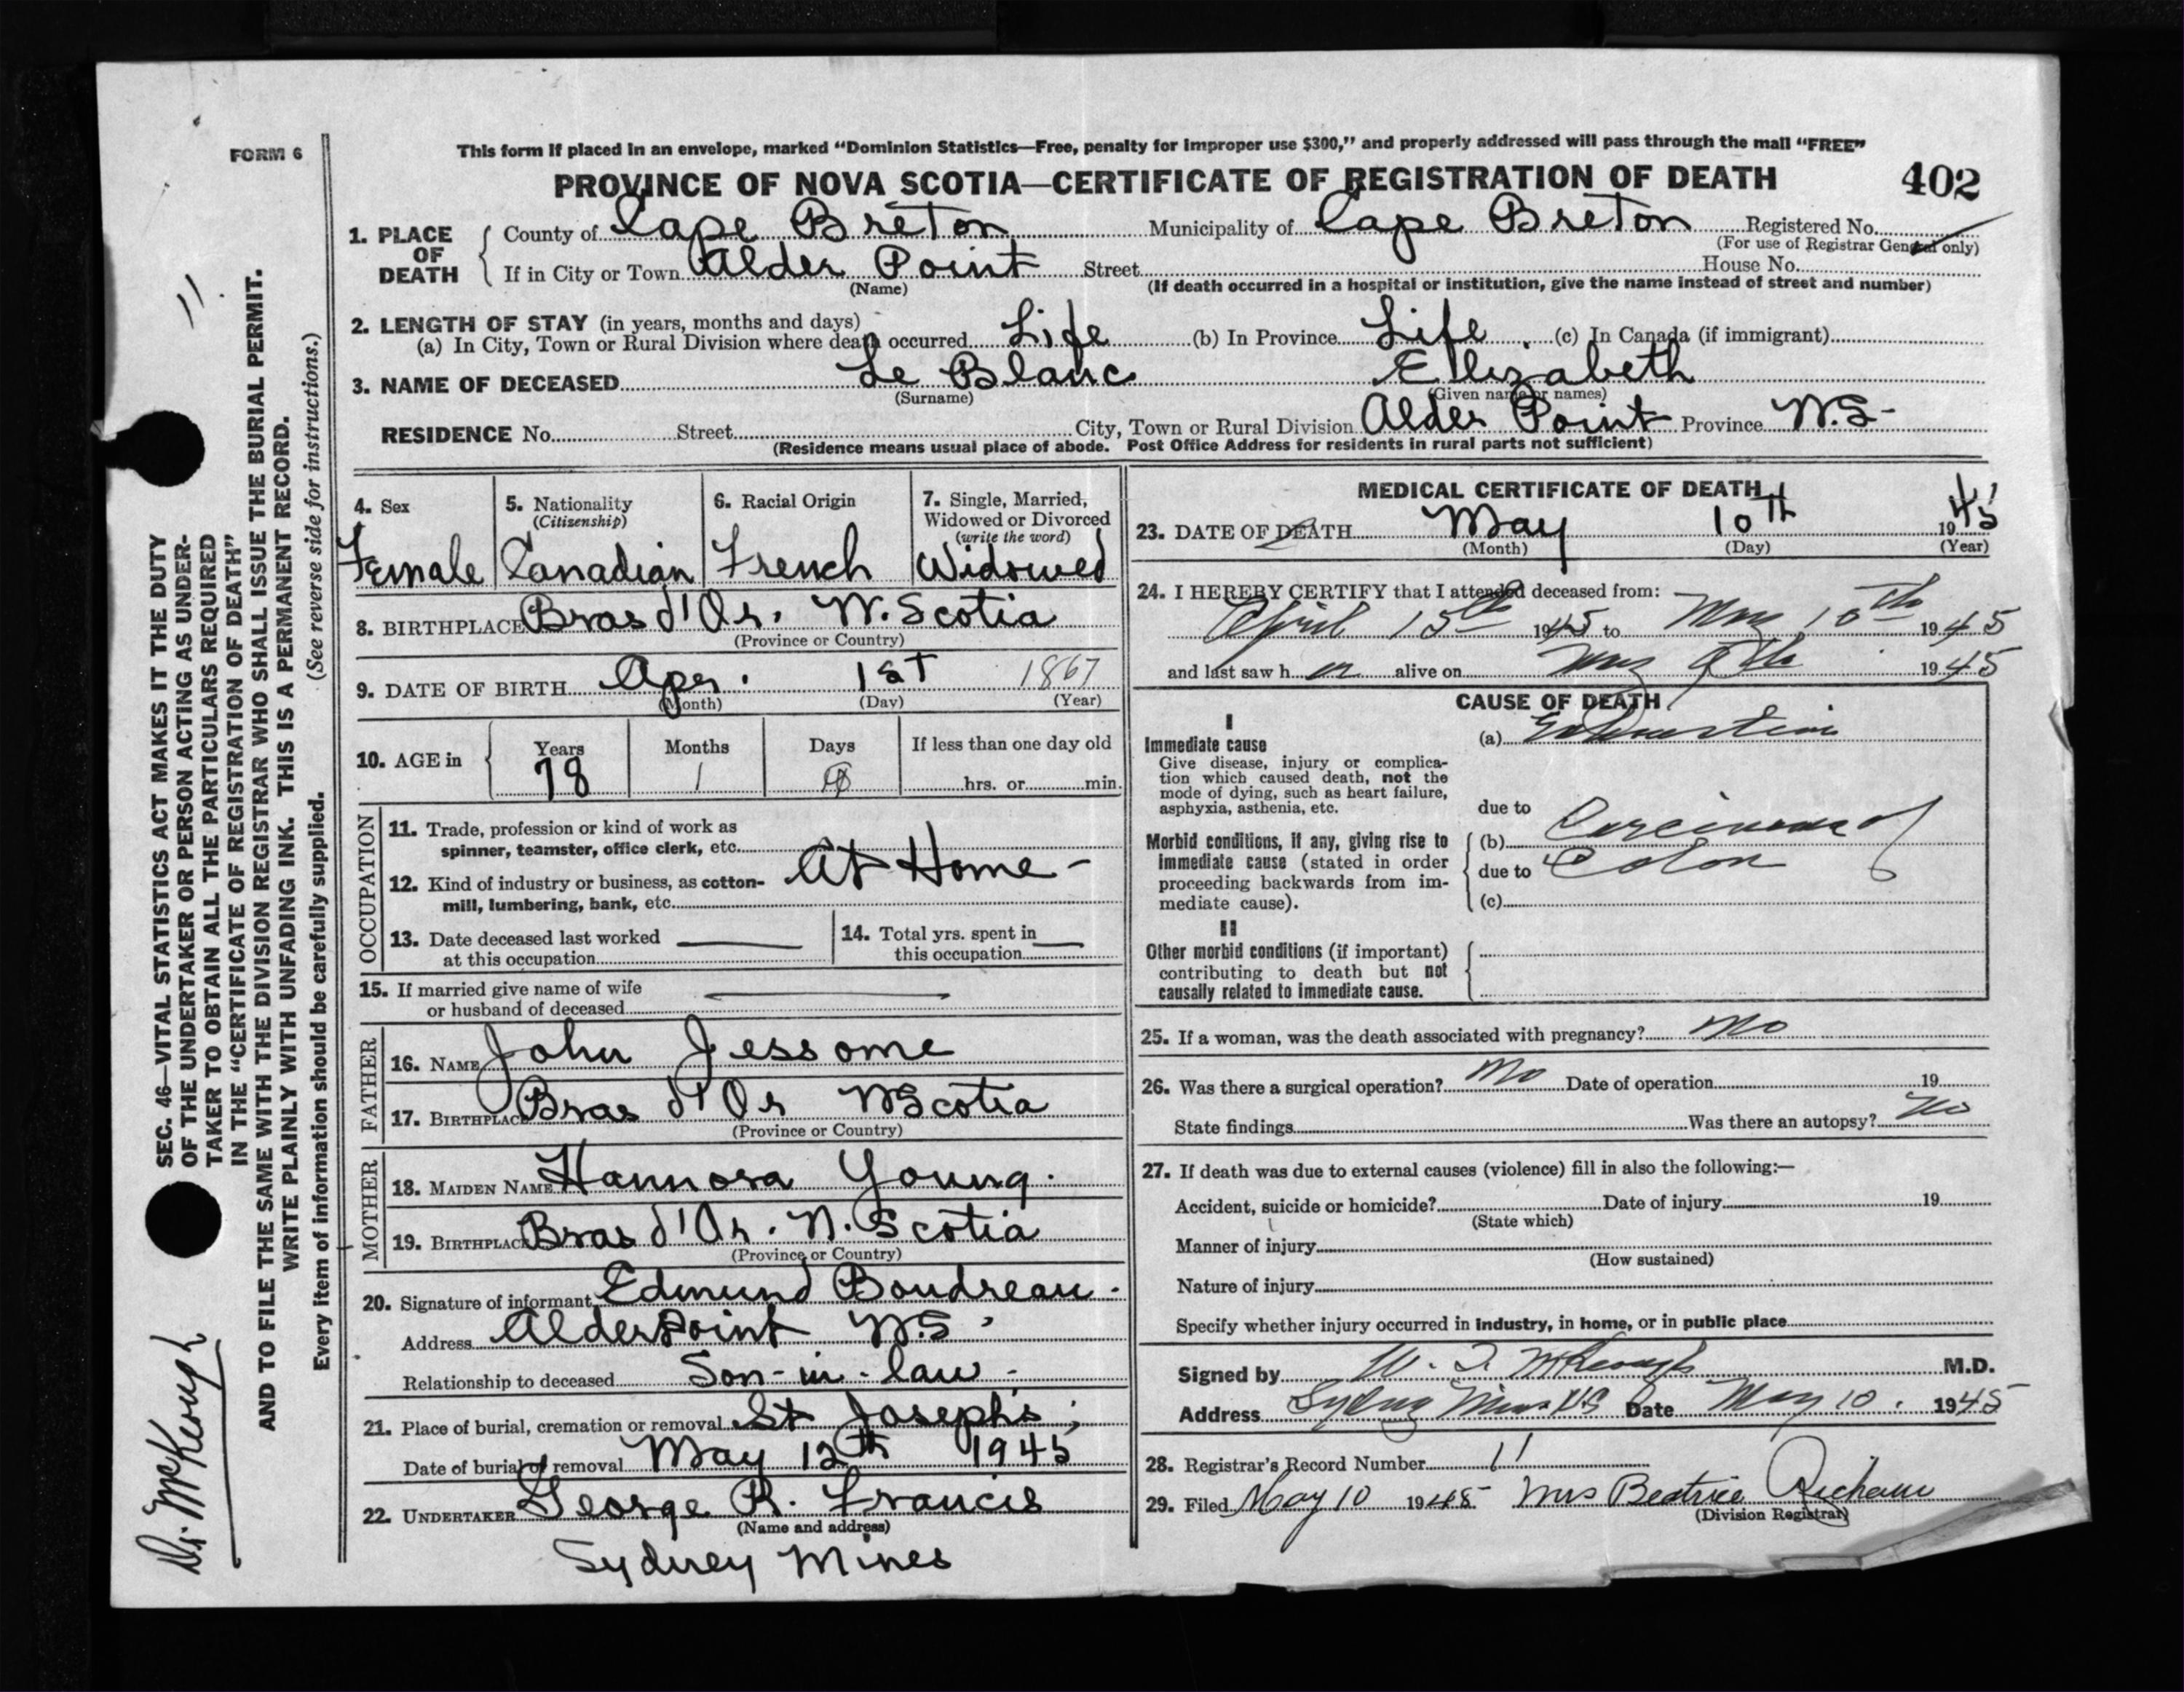 FORM 6
This form if placed in an envelope, marked "Dominion Statistics—Free, penalty for improper use $300," and properly addressed will pass through the mail "FREE"
PROVINCE OF NOVA SCOTIA—CERTIFICATE OF REGISTRATION OF DEATH 402
1. PLACE OF DEATH County of Cape Breton Municipality of Cape Breton Registered No.
(For use of Registrar General only)
If in City or Town Alder Point Street House No.
(Name) (If death occurred in a hospital or institution, give the name instead of street and number)
2. LENGTH OF STAY (in years, months and days)
(a) In City, Town or Rural Division where death occurred Life (b) In Province Life (c) In Canada (if immigrant)
3. NAME OF DECEASED Le Blanc Elizabeth
(Surname) (Given name or names)
RESIDENCE No. Street City, Town or Rural Division Alder Point Province N.S-
(Residence means usual place of abode. Post Office Address for residents in rural parts not sufficient)
4. Sex
Female
5. Nationality
(Citizenship)
Canadian
6. Racial Origin
French
7. Single, Married,
Widowed or Divorced
(write the word)
Widowed
8. BIRTHPLACE Bras d'Or. N. Scotia
(Province or Country)
9. DATE OF BIRTH Apr. 1st 1867
(Month) (Day) (Year)
10. AGE in Years Months Days If less than one day old
78 1 hrs. or min.
OCCUPATION
11. Trade, profession or kind of work as
spinner, teamster, office clerk, etc.
At Home -
12. Kind of industry or business, as cotton-
mill, lumbering, bank, etc.
13. Date deceased last worked
at this occupation
14. Total yrs. spent in
this occupation
15. If married give name of wife
or husband of deceased
FATHER
16. NAME John Jessome
17. BIRTHPLACE Bras d'Or N Scotia
(Province or Country)
MOTHER
18. MAIDEN NAME Hannora Young.
19. BIRTHPLACE Bras d'Or. N. Scotia
(Province or Country)
20. Signature of informant Edmund Boudreau.
Address Alder Point N.S.
Relationship to deceased Son-in-law-
21. Place of burial, cremation or removal St Joseph's
Date of burial or removal May 12th 1945
22. UNDERTAKER George R. Francis
(Name and address)
Sydney Mines
MEDICAL CERTIFICATE OF DEATH
23. DATE OF DEATH May 10th 1945
(Month) (Day) (Year)
24. I HEREBY CERTIFY that I attended deceased from:
April 15th 1945 to May 10th 1945
and last saw h er alive on May 9th 1945
CAUSE OF DEATH
I
Immediate cause
Give disease, injury or complica-
tion which caused death, not the
mode of dying, such as heart failure,
asphyxia, asthenia, etc.
(a) Exhaustion
due to
Morbid conditions, if any, giving rise to
immediate cause (stated in order
proceeding backwards from im-
mediate cause).
(b) Carcinoma of
due to Colon
(c)
II
Other morbid conditions (if important)
contributing to death but not
causally related to immediate cause.
25. If a woman, was the death associated with pregnancy? No
26. Was there a surgical operation? No Date of operation 19
State findings Was there an autopsy? No
27. If death was due to external causes (violence) fill in also the following:—
Accident, suicide or homicide? Date of injury 19
(State which)
Manner of injury
(How sustained)
Nature of injury
Specify whether injury occurred in industry, in home, or in public place
Signed by W. J. McKeough M.D.
Address Sydney Mines N.S Date May 10. 1945
28. Registrar's Record Number 11
29. Filed May 10 1945 Mrs Beatrice
(Division Registrar)
SEC. 46—VITAL STATISTICS ACT MAKES IT THE DUTY
OF THE UNDERTAKER OR PERSON ACTING AS UNDER-
TAKER TO OBTAIN ALL THE PARTICULARS REQUIRED
IN THE "CERTIFICATE OF REGISTRATION OF DEATH"
AND TO FILE THE SAME WITH THE DIVISION REGISTRAR WHO SHALL ISSUE THE BURIAL PERMIT.
WRITE PLAINLY WITH UNFADING INK. THIS IS A PERMANENT RECORD.
Every item of information should be carefully supplied. (See reverse side for instructions.)
11
Dr. McKeough